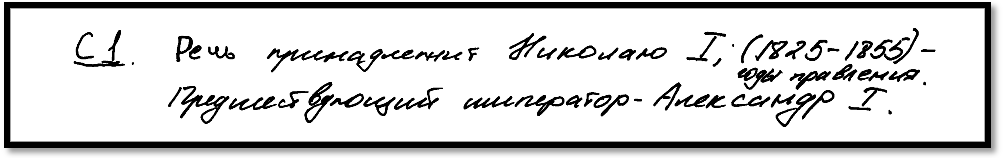 С1. Речь принадлежит Николаю I; (1825-1855)-
годы правления.
Предшествующий император - Александр I.